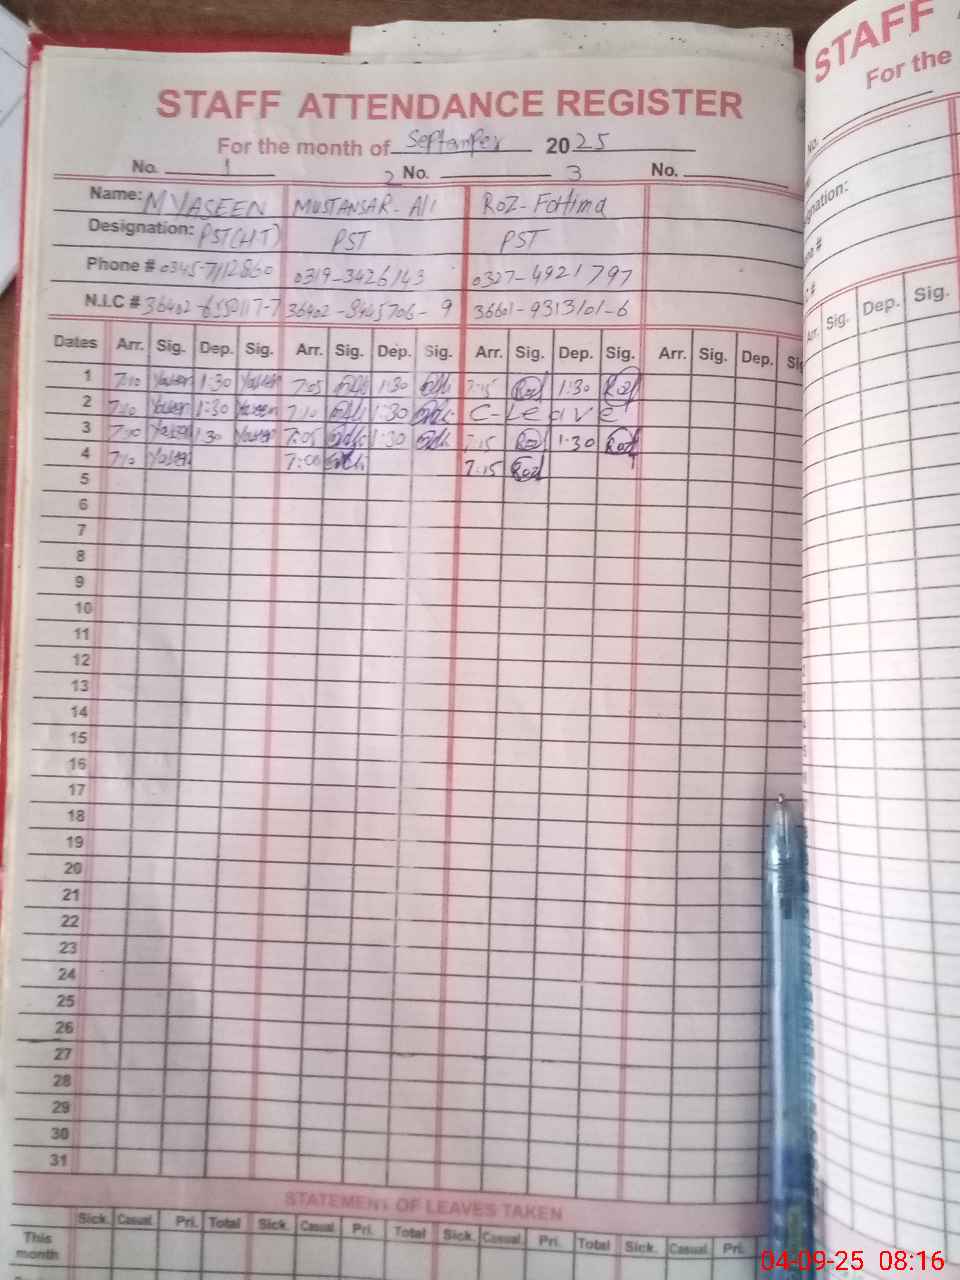 STAFF ATTENDANCE REGISTER
For the month of September 2025
No. 1 2 No. 3 No.
Name: M YASEEN MUSTANSAR-Ali ROZ-Fatima
Designation: PST(H.T) PST PST
Phone # 0345-7112860 0319-3426143 0327-4921797
N.I.C # 36402 - 9 36601-9313101-6
Dates Arr. Sig. Dep. Sig. Arr. Sig. Dep. Sig. Arr. Sig. Dep. Sig. Arr. Sig. Dep.
1 7:10 Yaseen 1:30 Yaseen 7:05 1:30 7:15 Roz 1:30 Roz
2 7:10 Yaseen 1:30 Yaseen 7:10 1:30 C-Leave
3 7:10 Yaseen 1:30 Yaseen 7:05 1:30 7:15 Roz 1:30 Roz
4 7:10 Yaseen 7:00 7:15 Roz
5
6
7
8
9
10
11
12
13
14
15
16
17
18
19
20
21
22
23
24
25
26
27
28
29
30
31
STATEMENT OF LEAVES TAKEN
Sick. Casual. Pri. Total Sick. Casual. Pri. Total Sick. Casual. Pri. Total Sick. Casual. Pri.
This
month
STAFF
For the
No.
Arr. Sig. Dep. Sig.
04-09-25 08:16